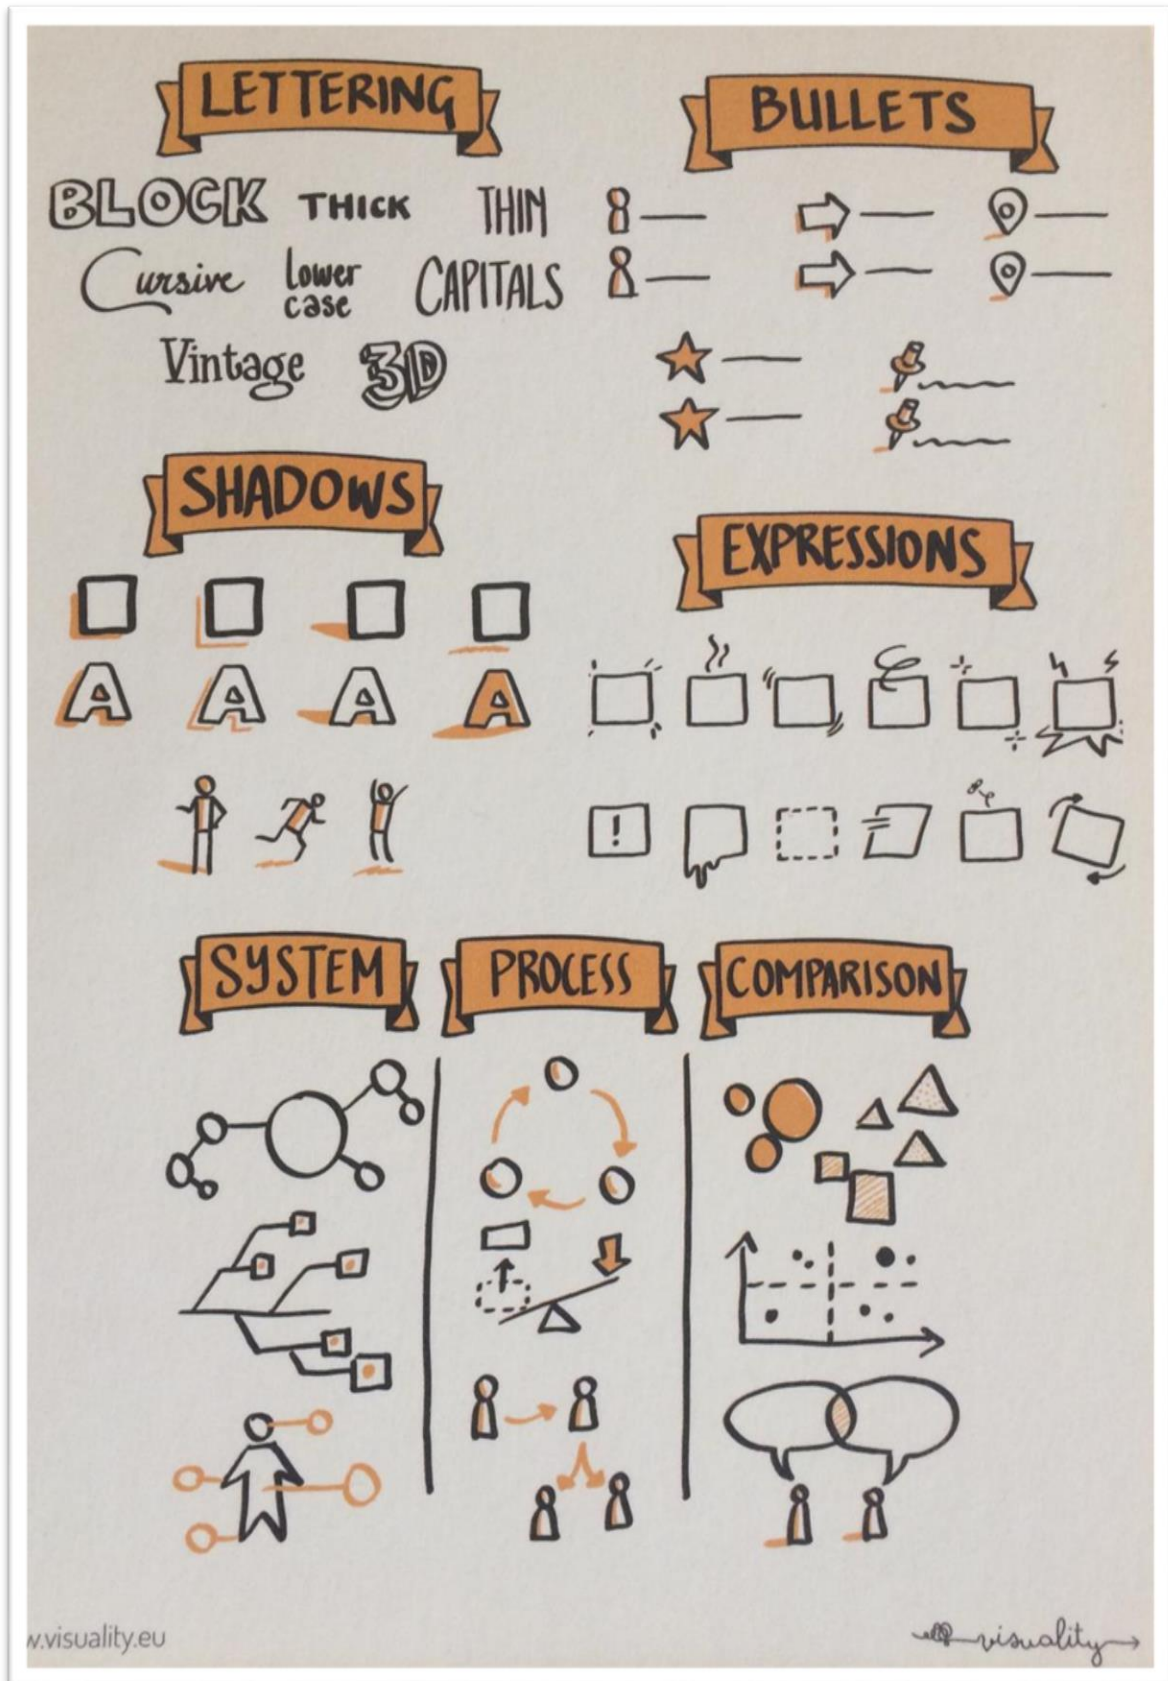 LETTERING
BLOCK THICK THIN
Cursive Lower case CAPITALS
Vintage 3D
BULLETS
SHADOWS
A A A A
EXPRESSIONS
!
SYSTEM
PROCESS
COMPARISON
w.visuality.eu
visuality